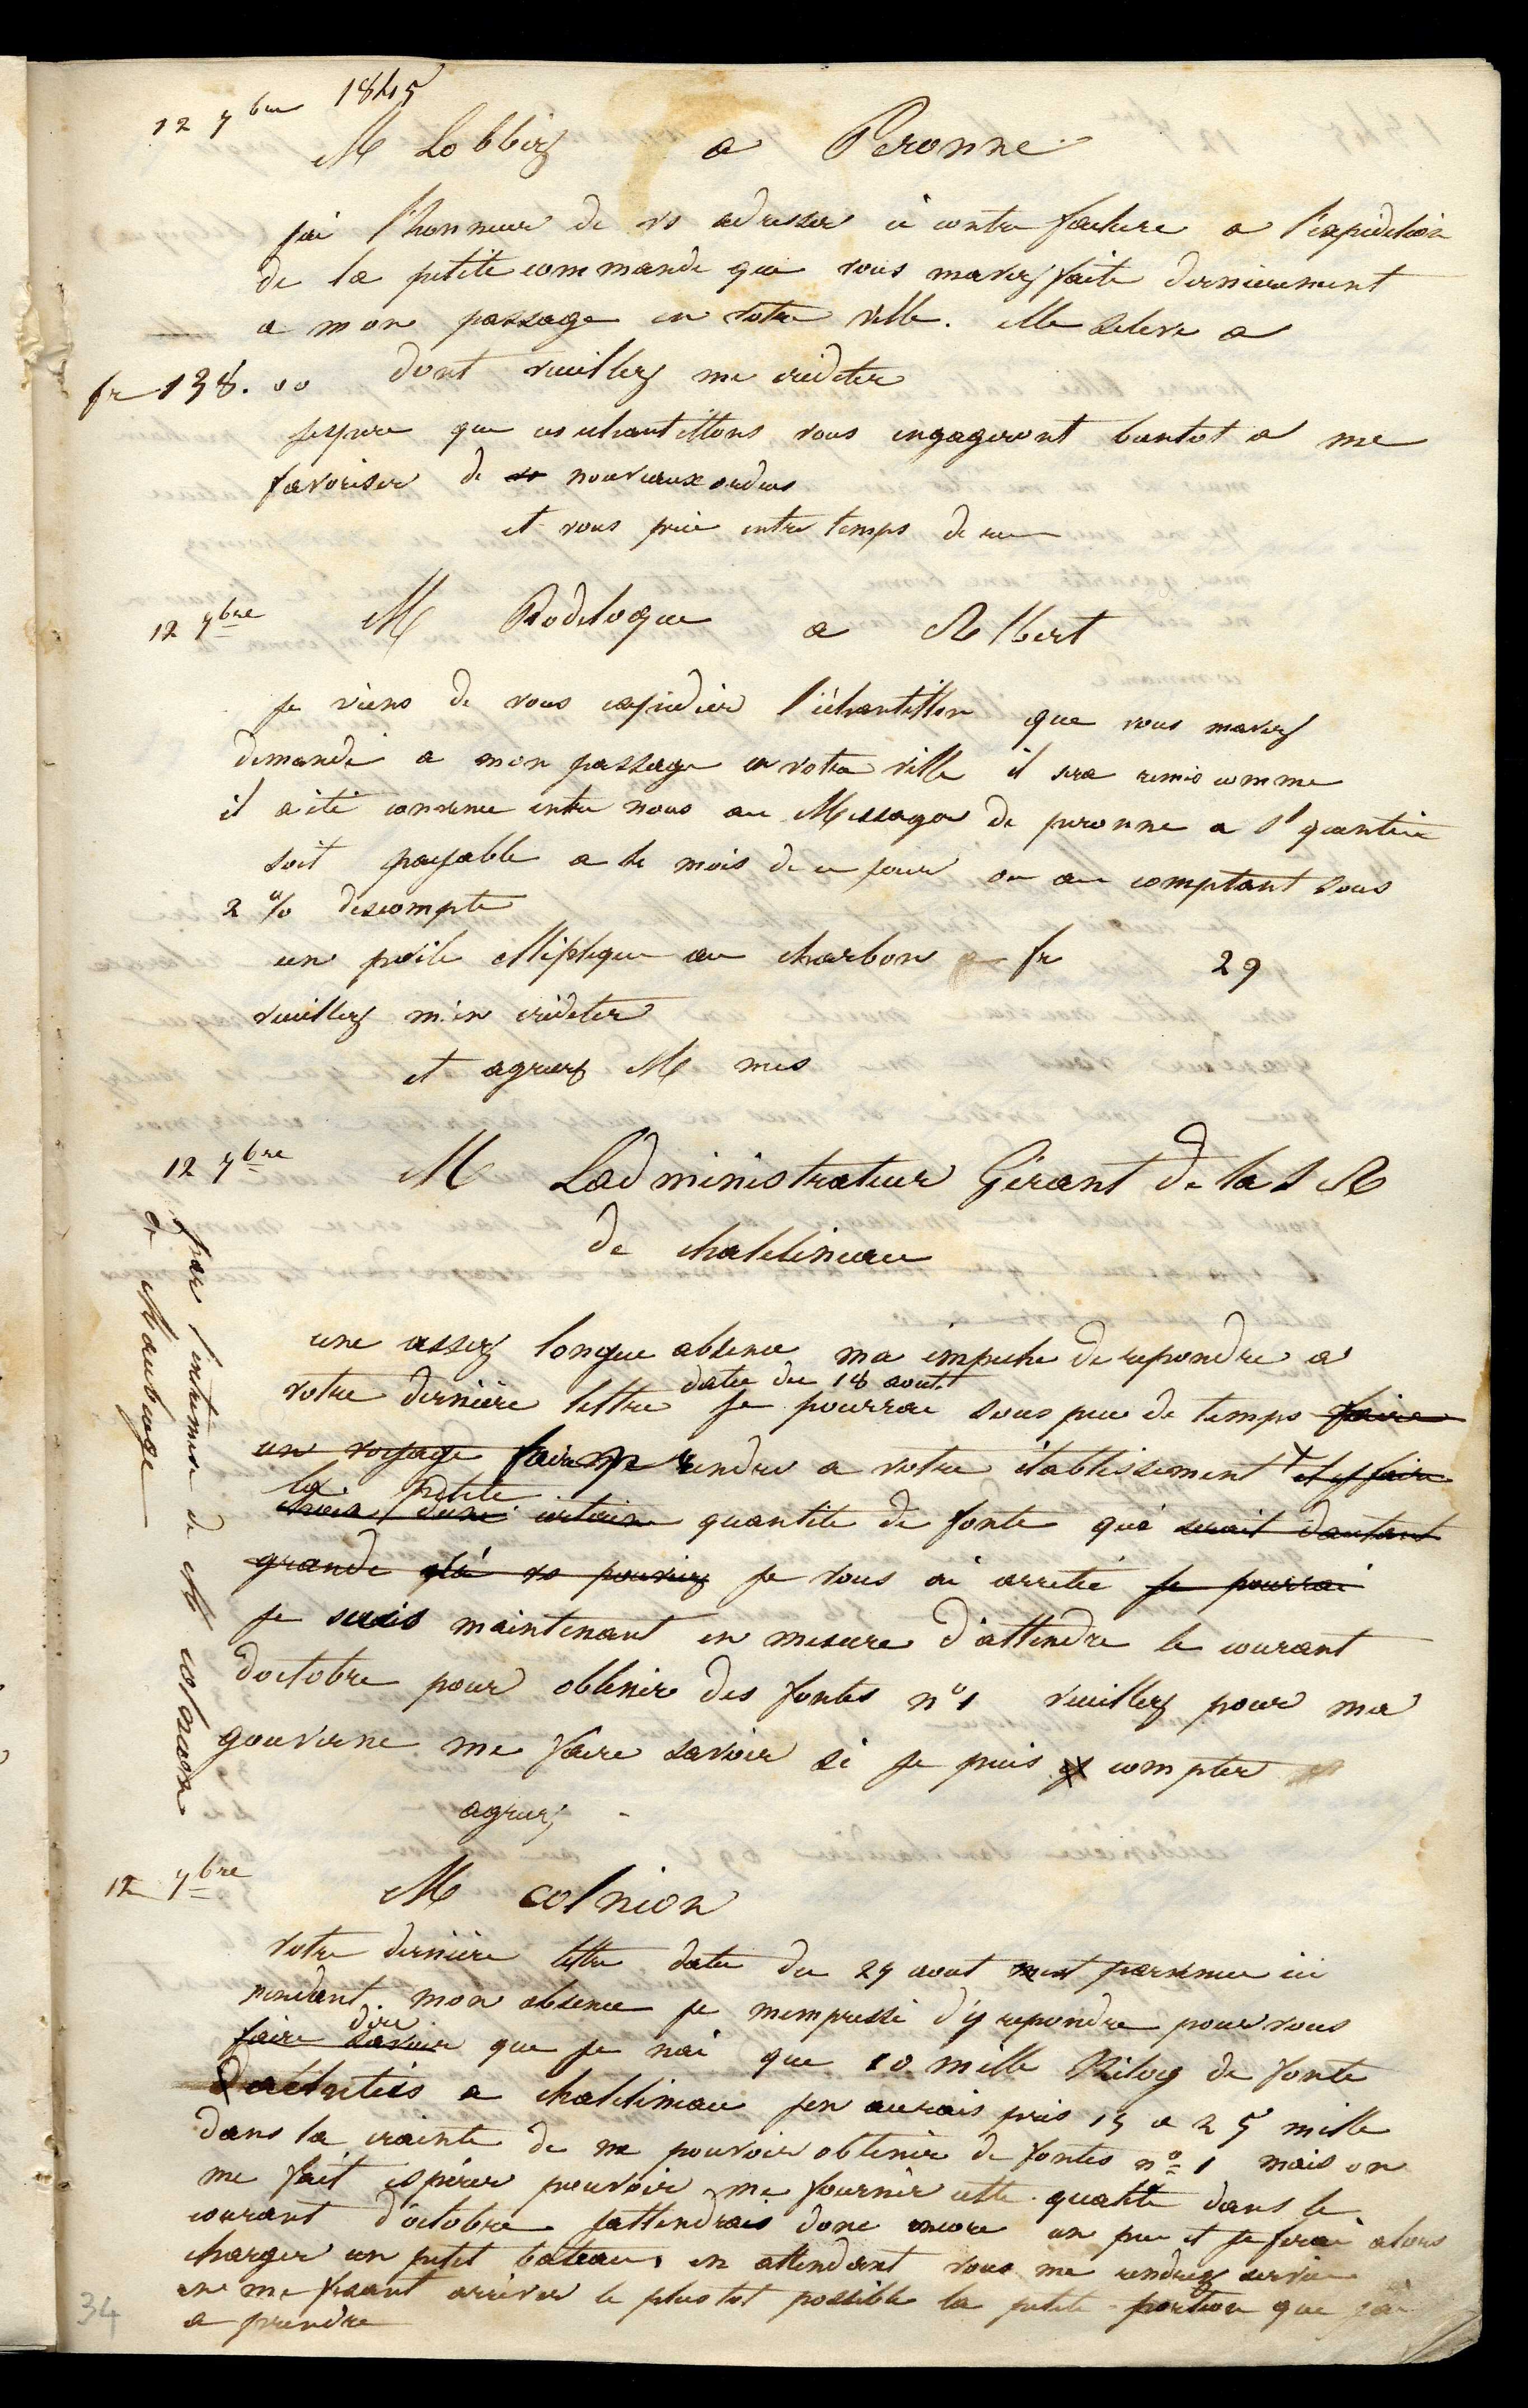 12 7bre 1845
M Lobbez a Peronne
jai l'honneur de vs adresser ci contre facture a l'expédition
de la petite commande que vous mavez faite dernierement
a mon passage en votre ville. elleseleve a
fr 138. 00 dont veuillez me créditer
jespere que ces echantillons vous engageront bientot a me
favoriser de nouveaux ordres
et vous prie entre temps de
12 7bre M Rodeloque a Albert
je viens de vous expedier l'échantillon que vous mavez
demandé a mon passage en votre ville il sera remis comme
il a été convenu entre nous au Messager de peronne a St quentin
soit payable a 6 mois de ce jour ou au comptant sous
2 % descompte
un poële elliptique au charbon fr 29
veuillez m'en créditer
et agreez M mes
12 7bre M Ladministrateur Gérant de la S A
de chatelineau
par l'entremise de M colnion
a Maubeuge
une assez longue absence ma empeché de repondre a
votre derniere lettre datee du 18 aout je pourrai sous peu de temps faire
un voyage faire prendre a votre établissement et y faire
choix d'une certaine la petite quantite de fonte que serait dautant
grande vs pouviez je vous ai arreté je pourrai
je suis maintenant en mesure d'attendre le courant
d'octobre pour obtenir des fontes n° 1 veuillez pour ma
gouverne me faire savoir si je puis y compter
agreez
12 7bre M colnion
votre derniere lettre datee du 27 aout mest parvenue ici
pendant mon absence je mempresse d'y repondre pour vous
faire savoir dire que je nai que 10 mille Kilog de fonte
dachetées a chatelineau jen aurais pris 15 a 25 mille
dans la crainte de ne pouvoir obtenir de fontes n° 1 mais on
me fait espérer pouvoir me fournir cette qualite dans le
courant d'octobre jattendrais donc encore un peu et je ferai alors
charger un petit bateau, en attendant vous me rendrez service
en me fesant arriver le plustot possible la petite portion que j'ai
a prendre
34